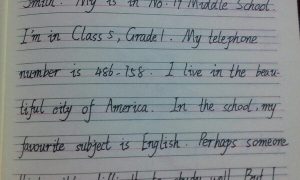 Smith. My is in No. 17 Middle School.
I'm in Class 5, Grade 1. My telephone
number is 486-758. I live in the beau-
tiful city of America. In the school, my
favourite subject is English. Perhaps someone
study well. But I